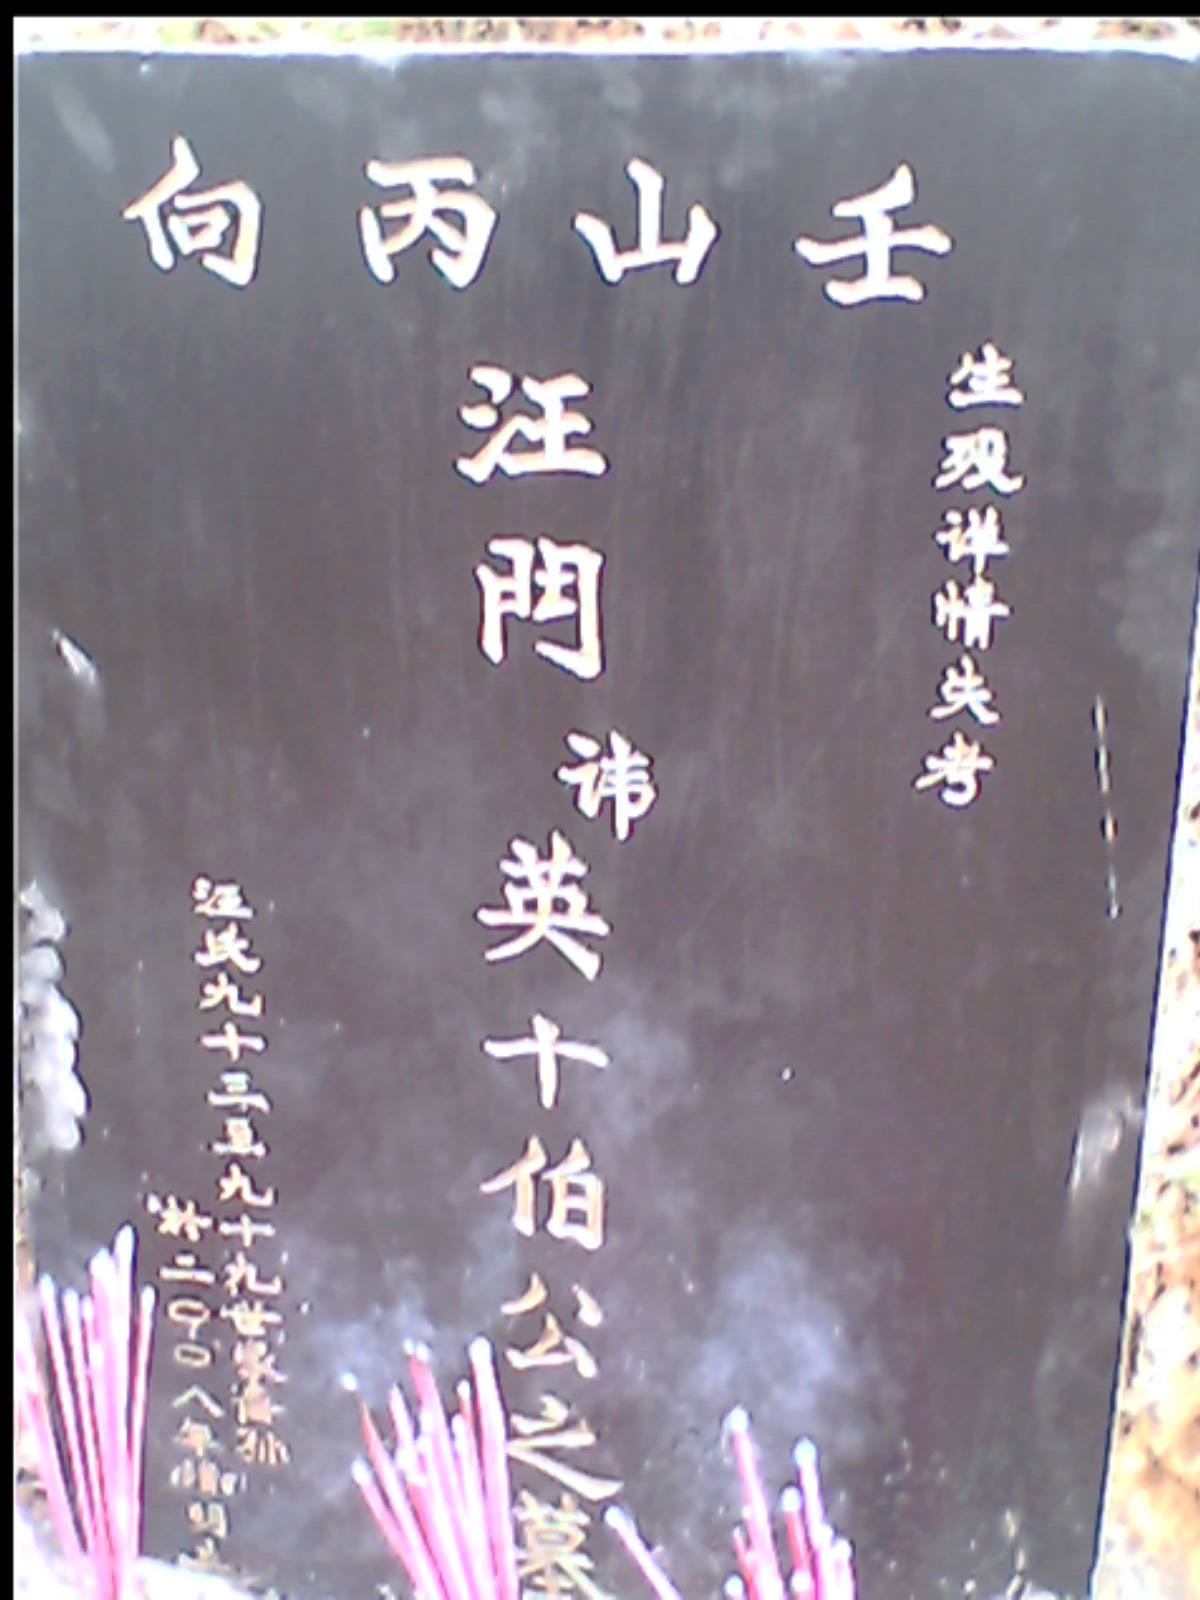 壬山丙向
生殁详情失考
汪門讳英十伯公之墓
汪氏九十三至九十九世家裔孙
於二00八年清明立